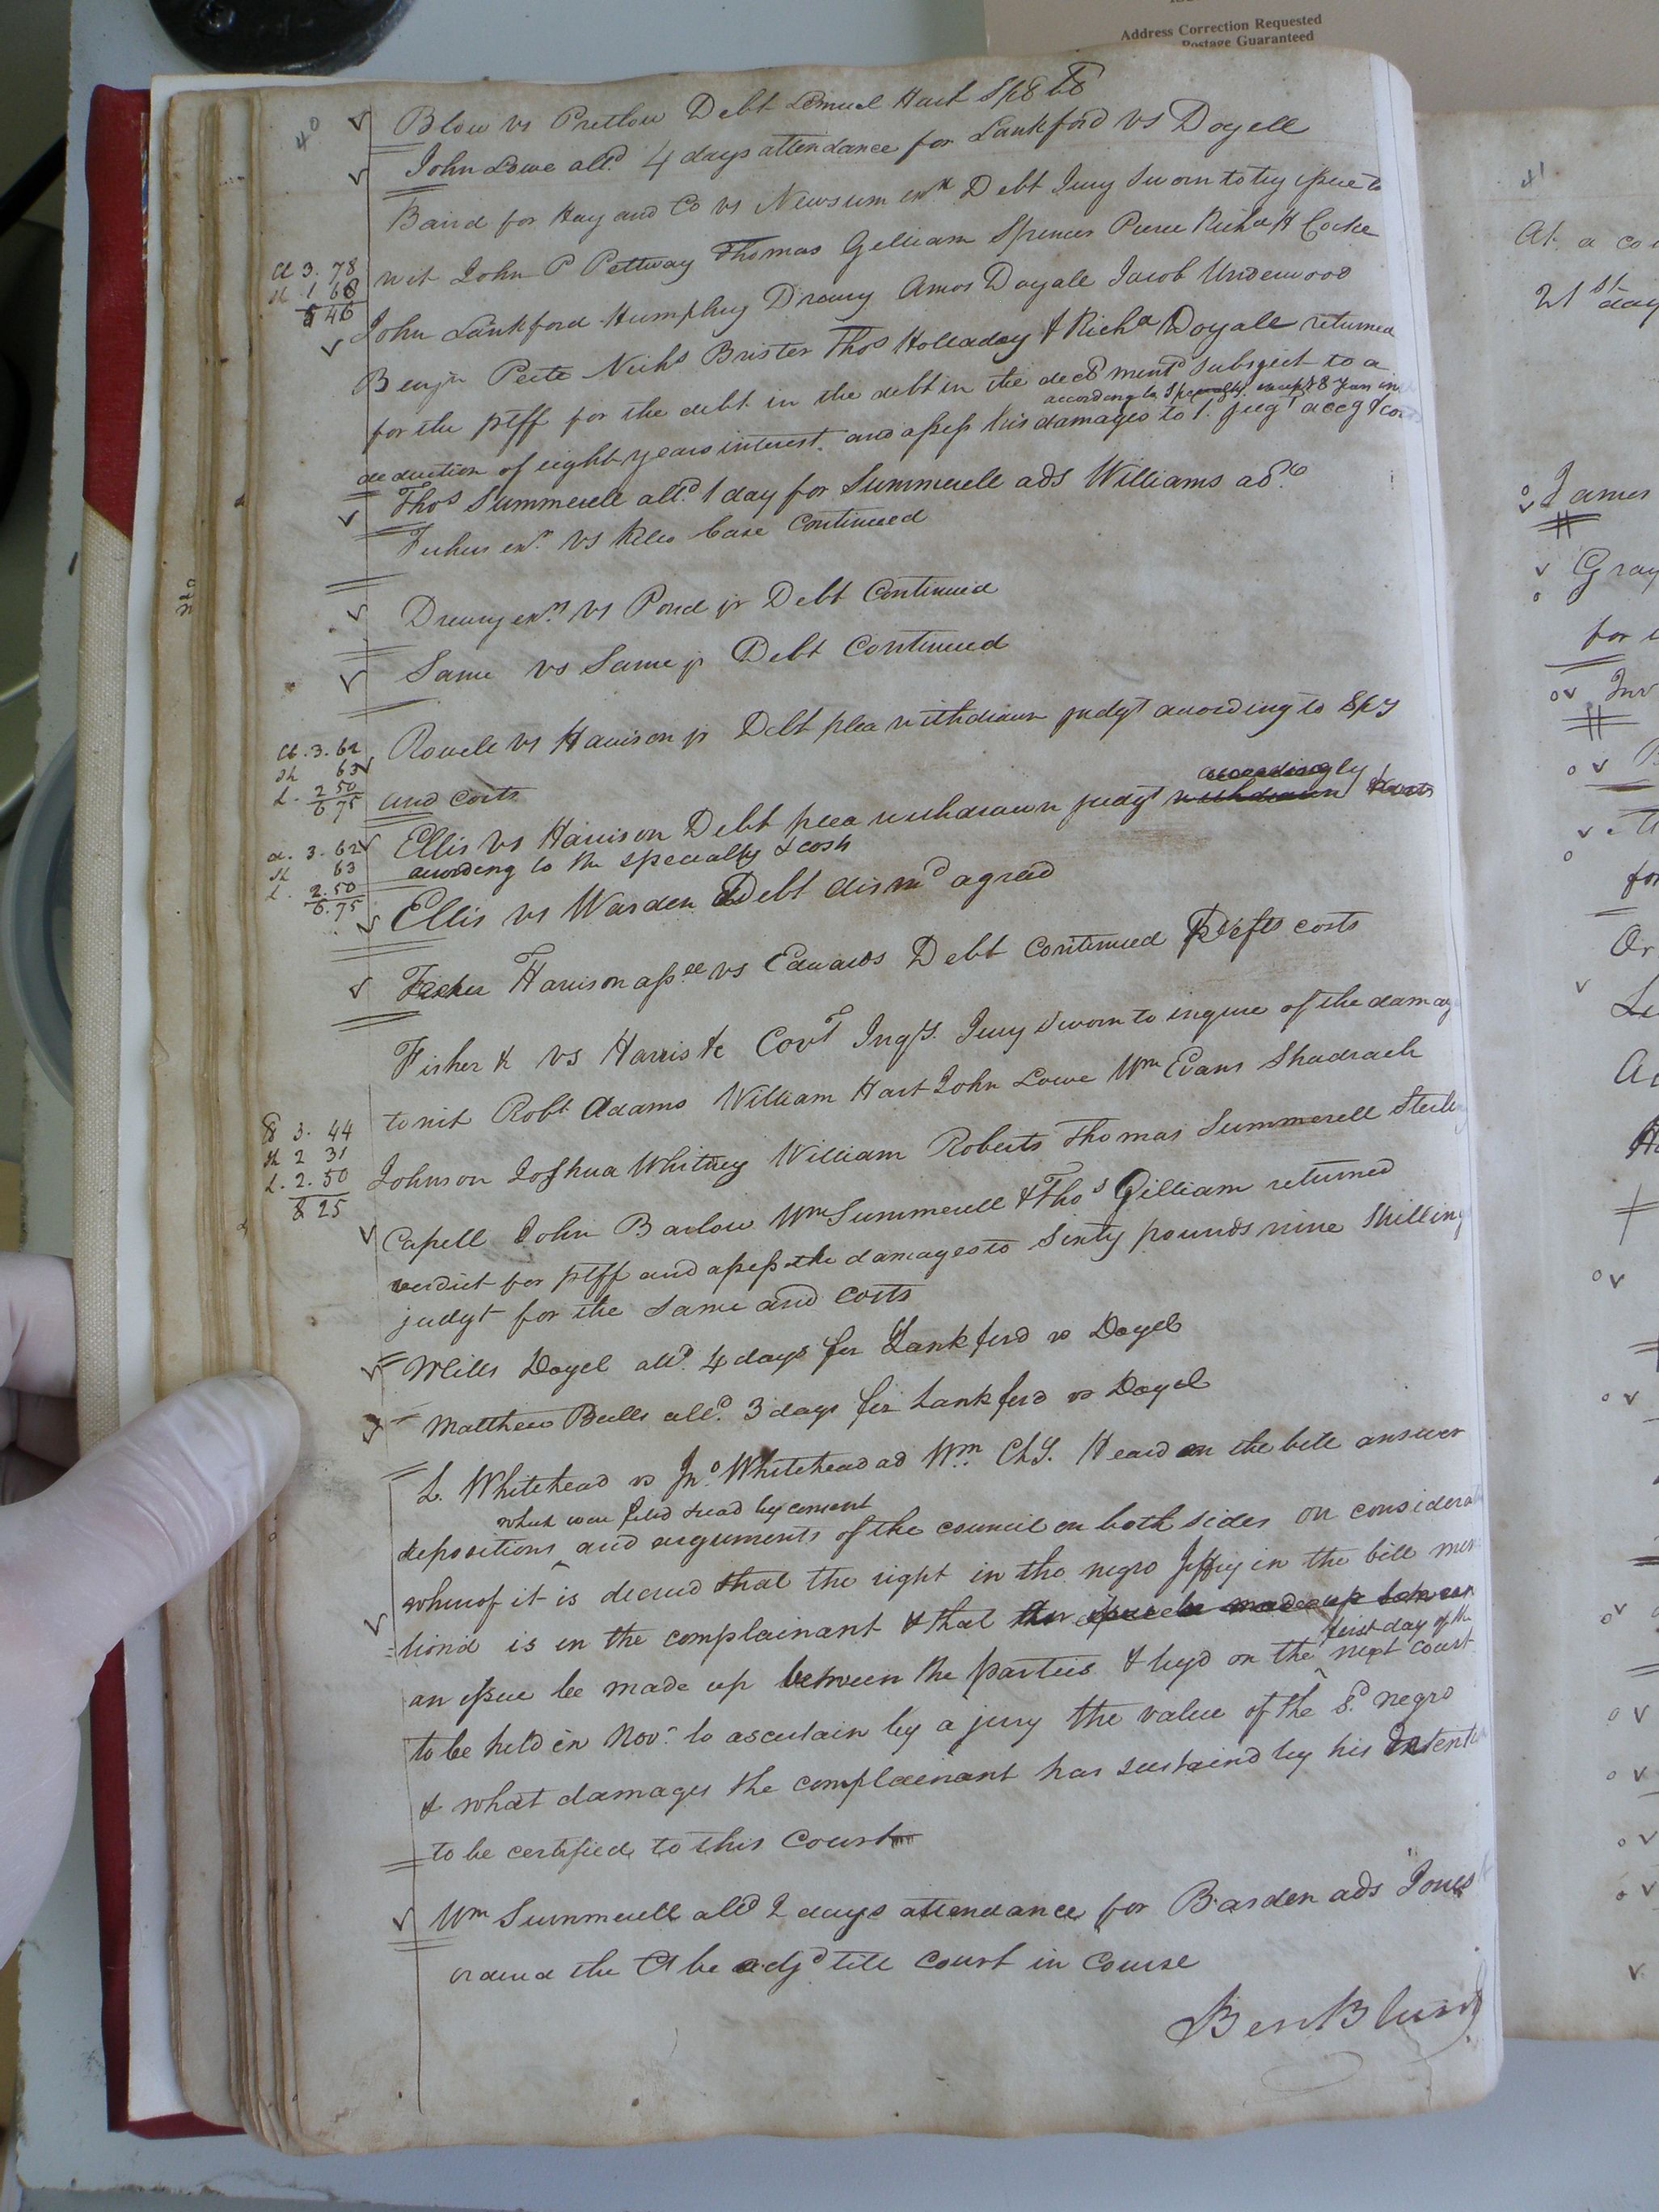 Address Correction Requested
Postage Guaranteed
40
Blow vs Pretlow Debt Lemuel Hart
John Lowe alld. 4 days attendance for Lankford vs Doyell
Baird for Hay and Co vs Newsum exr Debt Jury Sworn to try issue to
wit John P Pettway Thomas Gilliam Spencer Pierce Richd H Cocke
Cl 3. 78
Sh 1 68
5 46
John Lankford Humphry Drewry Amos Doyale Jacob Underwood
Benjn Peete Nichs Brister Thos Holladay & Richd Doyale returned
for the ptff for the debt in the debt in the decd mentd Subject to a
according to Specialty except 8 years
deduction of eight years interest and assess his damages to 1d. Jugt accg & cos
Thos Summerell alld. 1 day for Summerell ads Williams
exr. vs Case Continued
Drewry exrs vs Pond jr Debt Continued
Same vs Same jr Debt Continued
Cl. 3. 62
Sh 63
L. 2 50
6 75
Rowell vs Harrison jr Debt plea withdrawn judgt according to Spy
and costs
accordingly
Cl. 3. 62
Sh 63
L. 2. 50
6. 75
Ellis vs Harrison Debt plea withdrawn judgt withdrawn & costs
according to the specialty & costs
Ellis vs Warden Debt dismd agreed
Fisher Harrison assee vs Edwards Debt Continued Defts costs
Fisher & vs Harris &c Covt Inqy. Jury Sworn to inquire of the damag
to wit Robt Adams William Hart John Lowe Wm Evans Shadrach
3. 44
Sh 2 31
L. 2. 50
8 25
Johnson Joshua Whitney William Roberts Thomas Summerell Sterling
Capell John Barlow Wm Summerell & Thos Gilliam returned
verdict for ptff and assess the damages to Sixty pounds nine Shilling
judgt for the Same and costs
Mills Doyel alld. 4 days for Lankford vs Doyel
Matthew Bells alld. 3 days for Lankford vs Doyel
L. Whitehead vs Jno. Whitehead ad Wm. Chy. Heard on the bill answer
which were filed & read by consent
depositions ^ and arguments of the council on both sides on considerat
whereof it is decreed that the right in the negro Jeffry in the bill men
=tion'd is in the complainant & that the issue be made up between
first day of the
an issue be made up between the parties & tryd on the ^ next Court
to be held in Novr to ascertain by a jury the value of the sd. negro
& what damages the complainant has sustain'd by his Detent
to be certified to this Court
Wm Summerell alld 2 days attendance for Barden ads Jones
ordered the Ct be adjd till Court in Course
Ben Blunt
41
At a co
21st day
James
Gray
for
Inv
Or